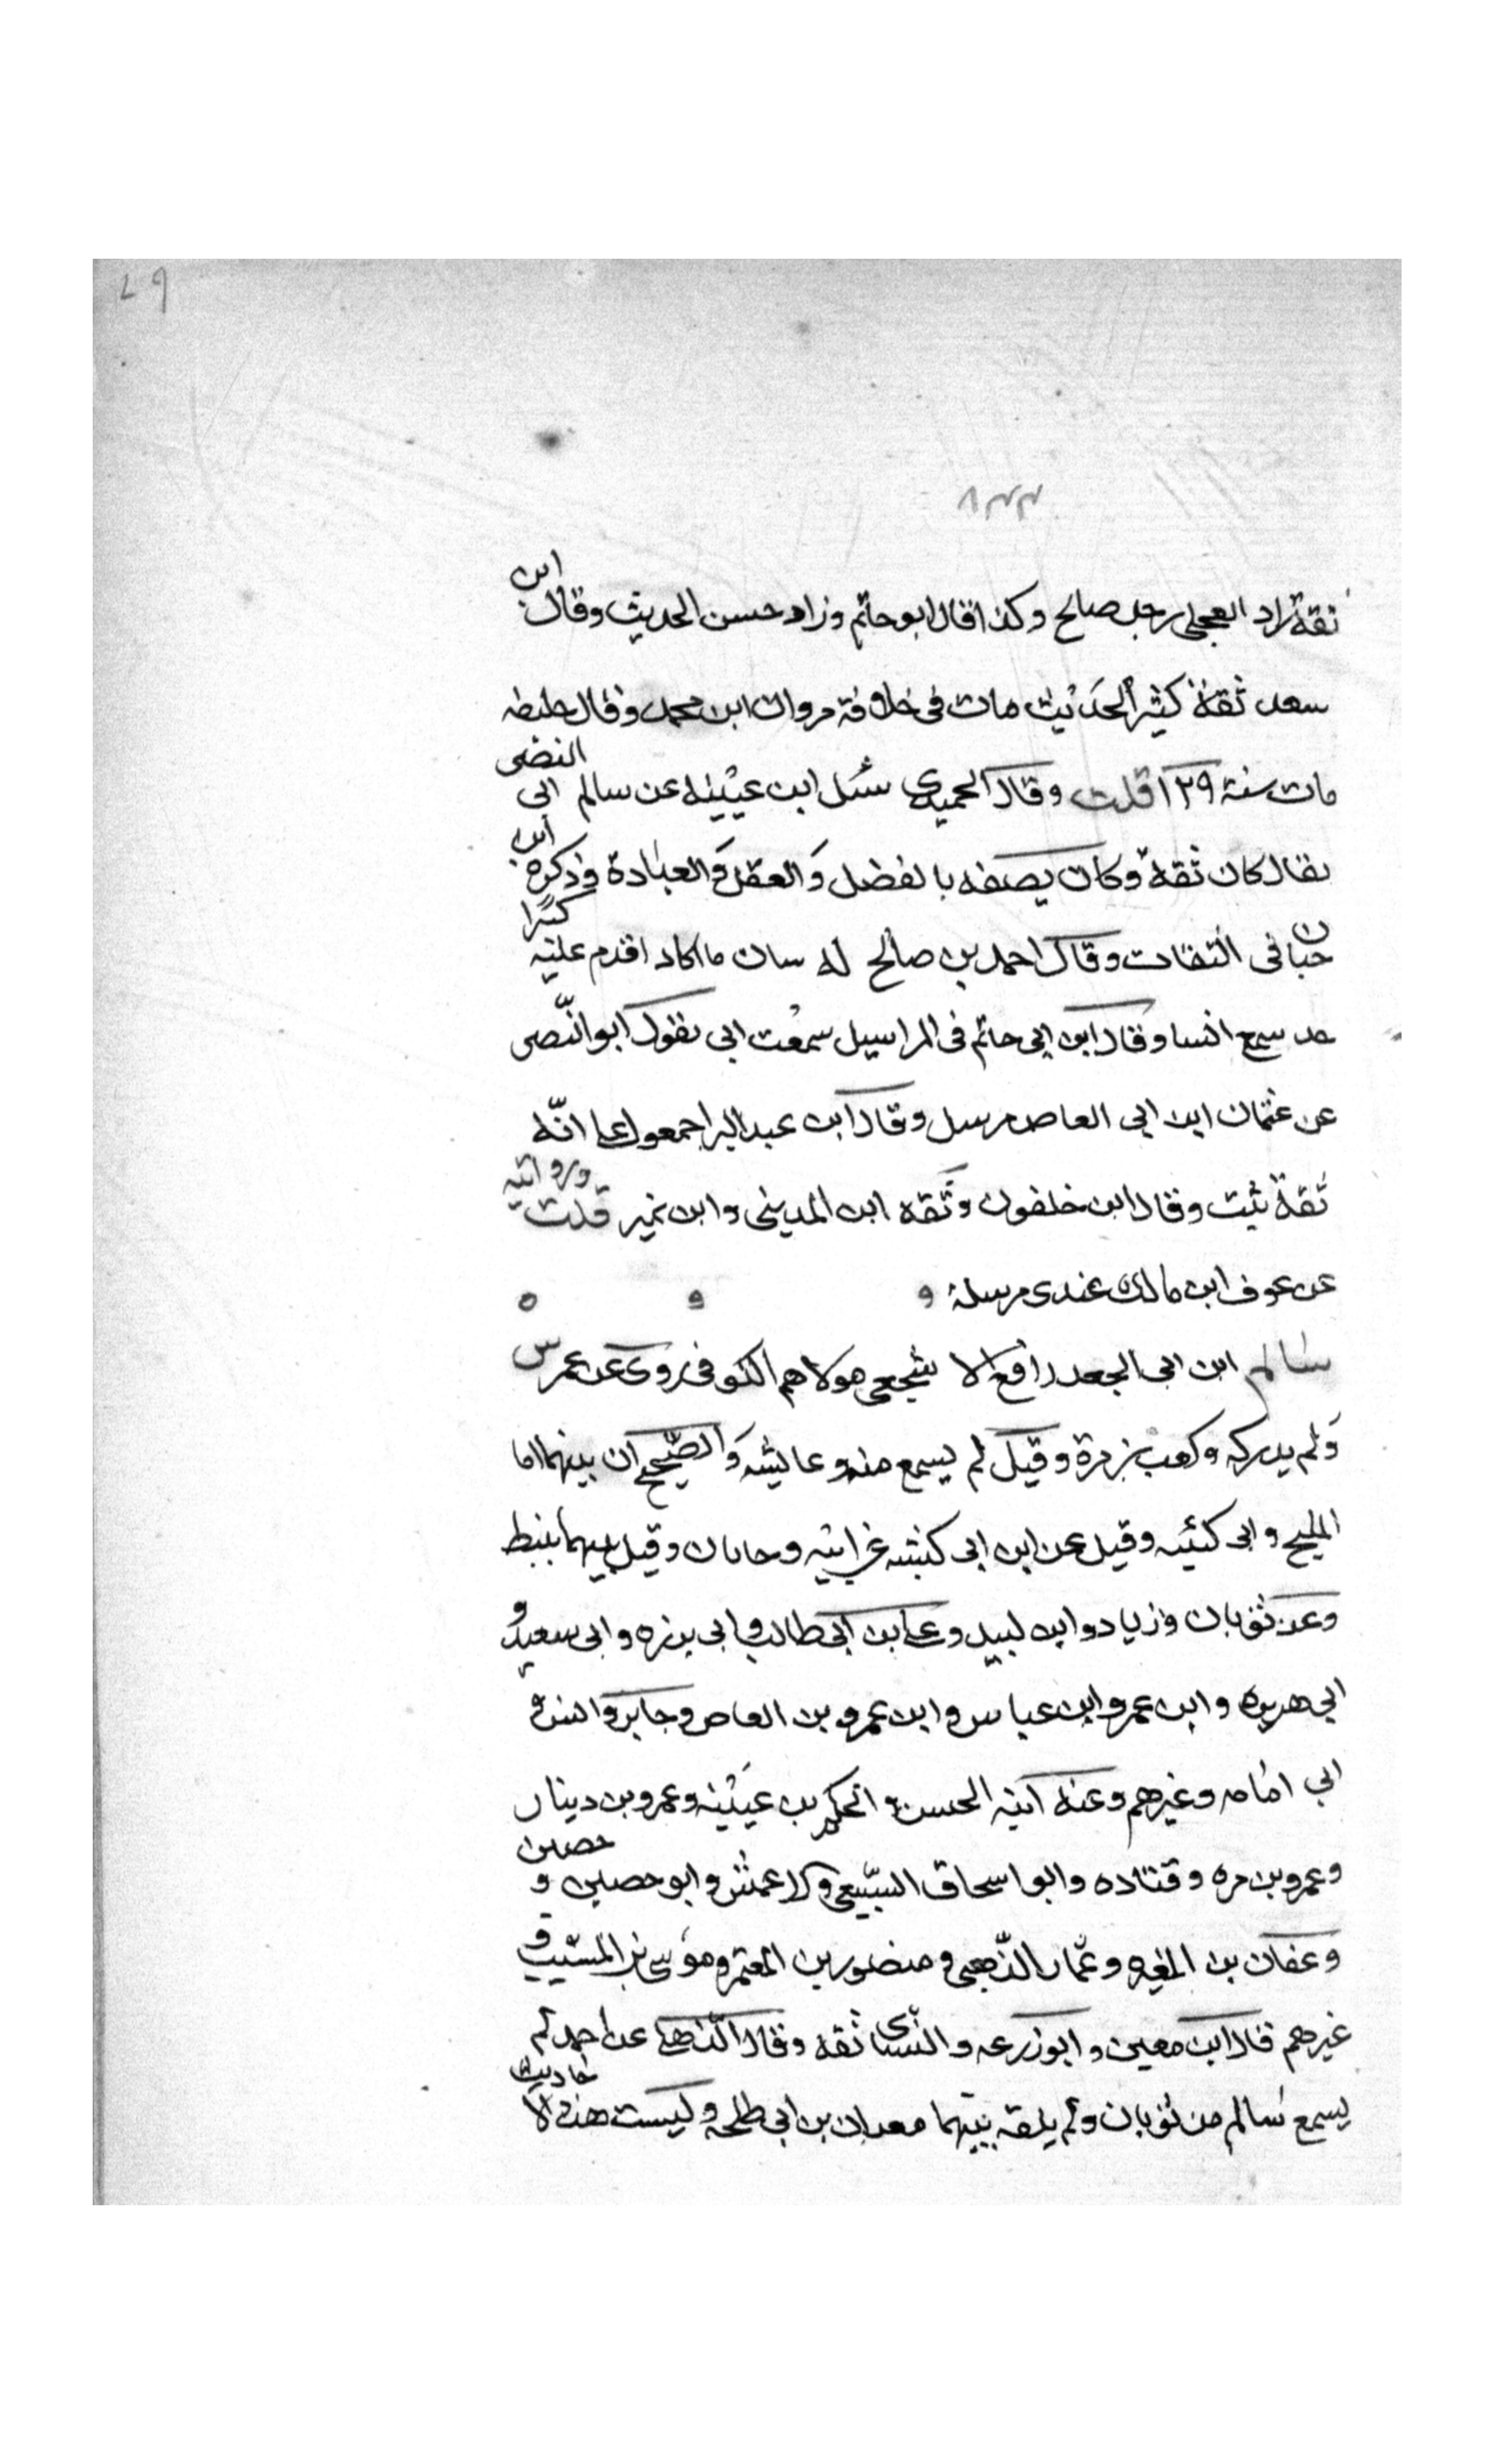 ثقة زاد العجلي رجل صالح وكذا قال ابو حاتم وزاد حسن الحديث وقال ابن
سعد ثقة كثير الحديث مات في خلافة مروان ابن محمد وقال خليفه
مات سنة ١٢٩ قلت وقال الحميدي سئل ابن عيينه عن سالم ابي النضر
فقال كان ثقة وكان يصفه بالفضل والعقل والعبادة وذكره ابن
حبان في الثقات وقال احمد بن صالح له شان ما اكاد اقدم عليه كثيرا
سمع انسا وقال ابن ابي حاتم في المراسيل سمعت ابي يقول ابو النصر
عن عثمان ابن ابي العاص مرسل وقال ابن عبد البر اجمعوا على انه
ثقة ثبت وقال ابن خلفون وثقه ابن المديني وابن نمير قلت وروايته
عن عوف ابن مالك عندي مرسلة
سالم ابن ابي الجعد رافع الاشجعي مولاهم الكوفي روى عن عمر س
ولم يدركه وكعب بن مرة وقيل لم يسمع منه وعايشه والصحيح ان بينهما ابا
المليح وابي كبشه وقيل عن ابن ابي كبشه عن ابيه وجابان وقيل بينهما نبيط
وعن ثوبان وزياد ابن لبيد وعلي بن ابي طالب وابي برزه وابي سعيد و
ابي هريره وابن عمر وابن عباس وابن عمرو بن العاص وجابر وانس و
ابي امامه وغيرهم وعنه ابنه الحسن والحكم بن عيينه وعمرو بن دينار
وعمرو بن مره وقتاده وابو اسحاق السبيعي والاعمش وابو حصين و حصين
وعفان بن المغيره وعمار الذهبي ومنصور بن المعتمر وموسى بن المسيب و
غيرهم قال ابن معين وابو زرعه والنسائي ثقه وقال الذهلي عن احمد لم
يسمع سالم من ثوبان ولم يلقه بينهما معدان بن ابي طلحه وليست هذه الاحاديث